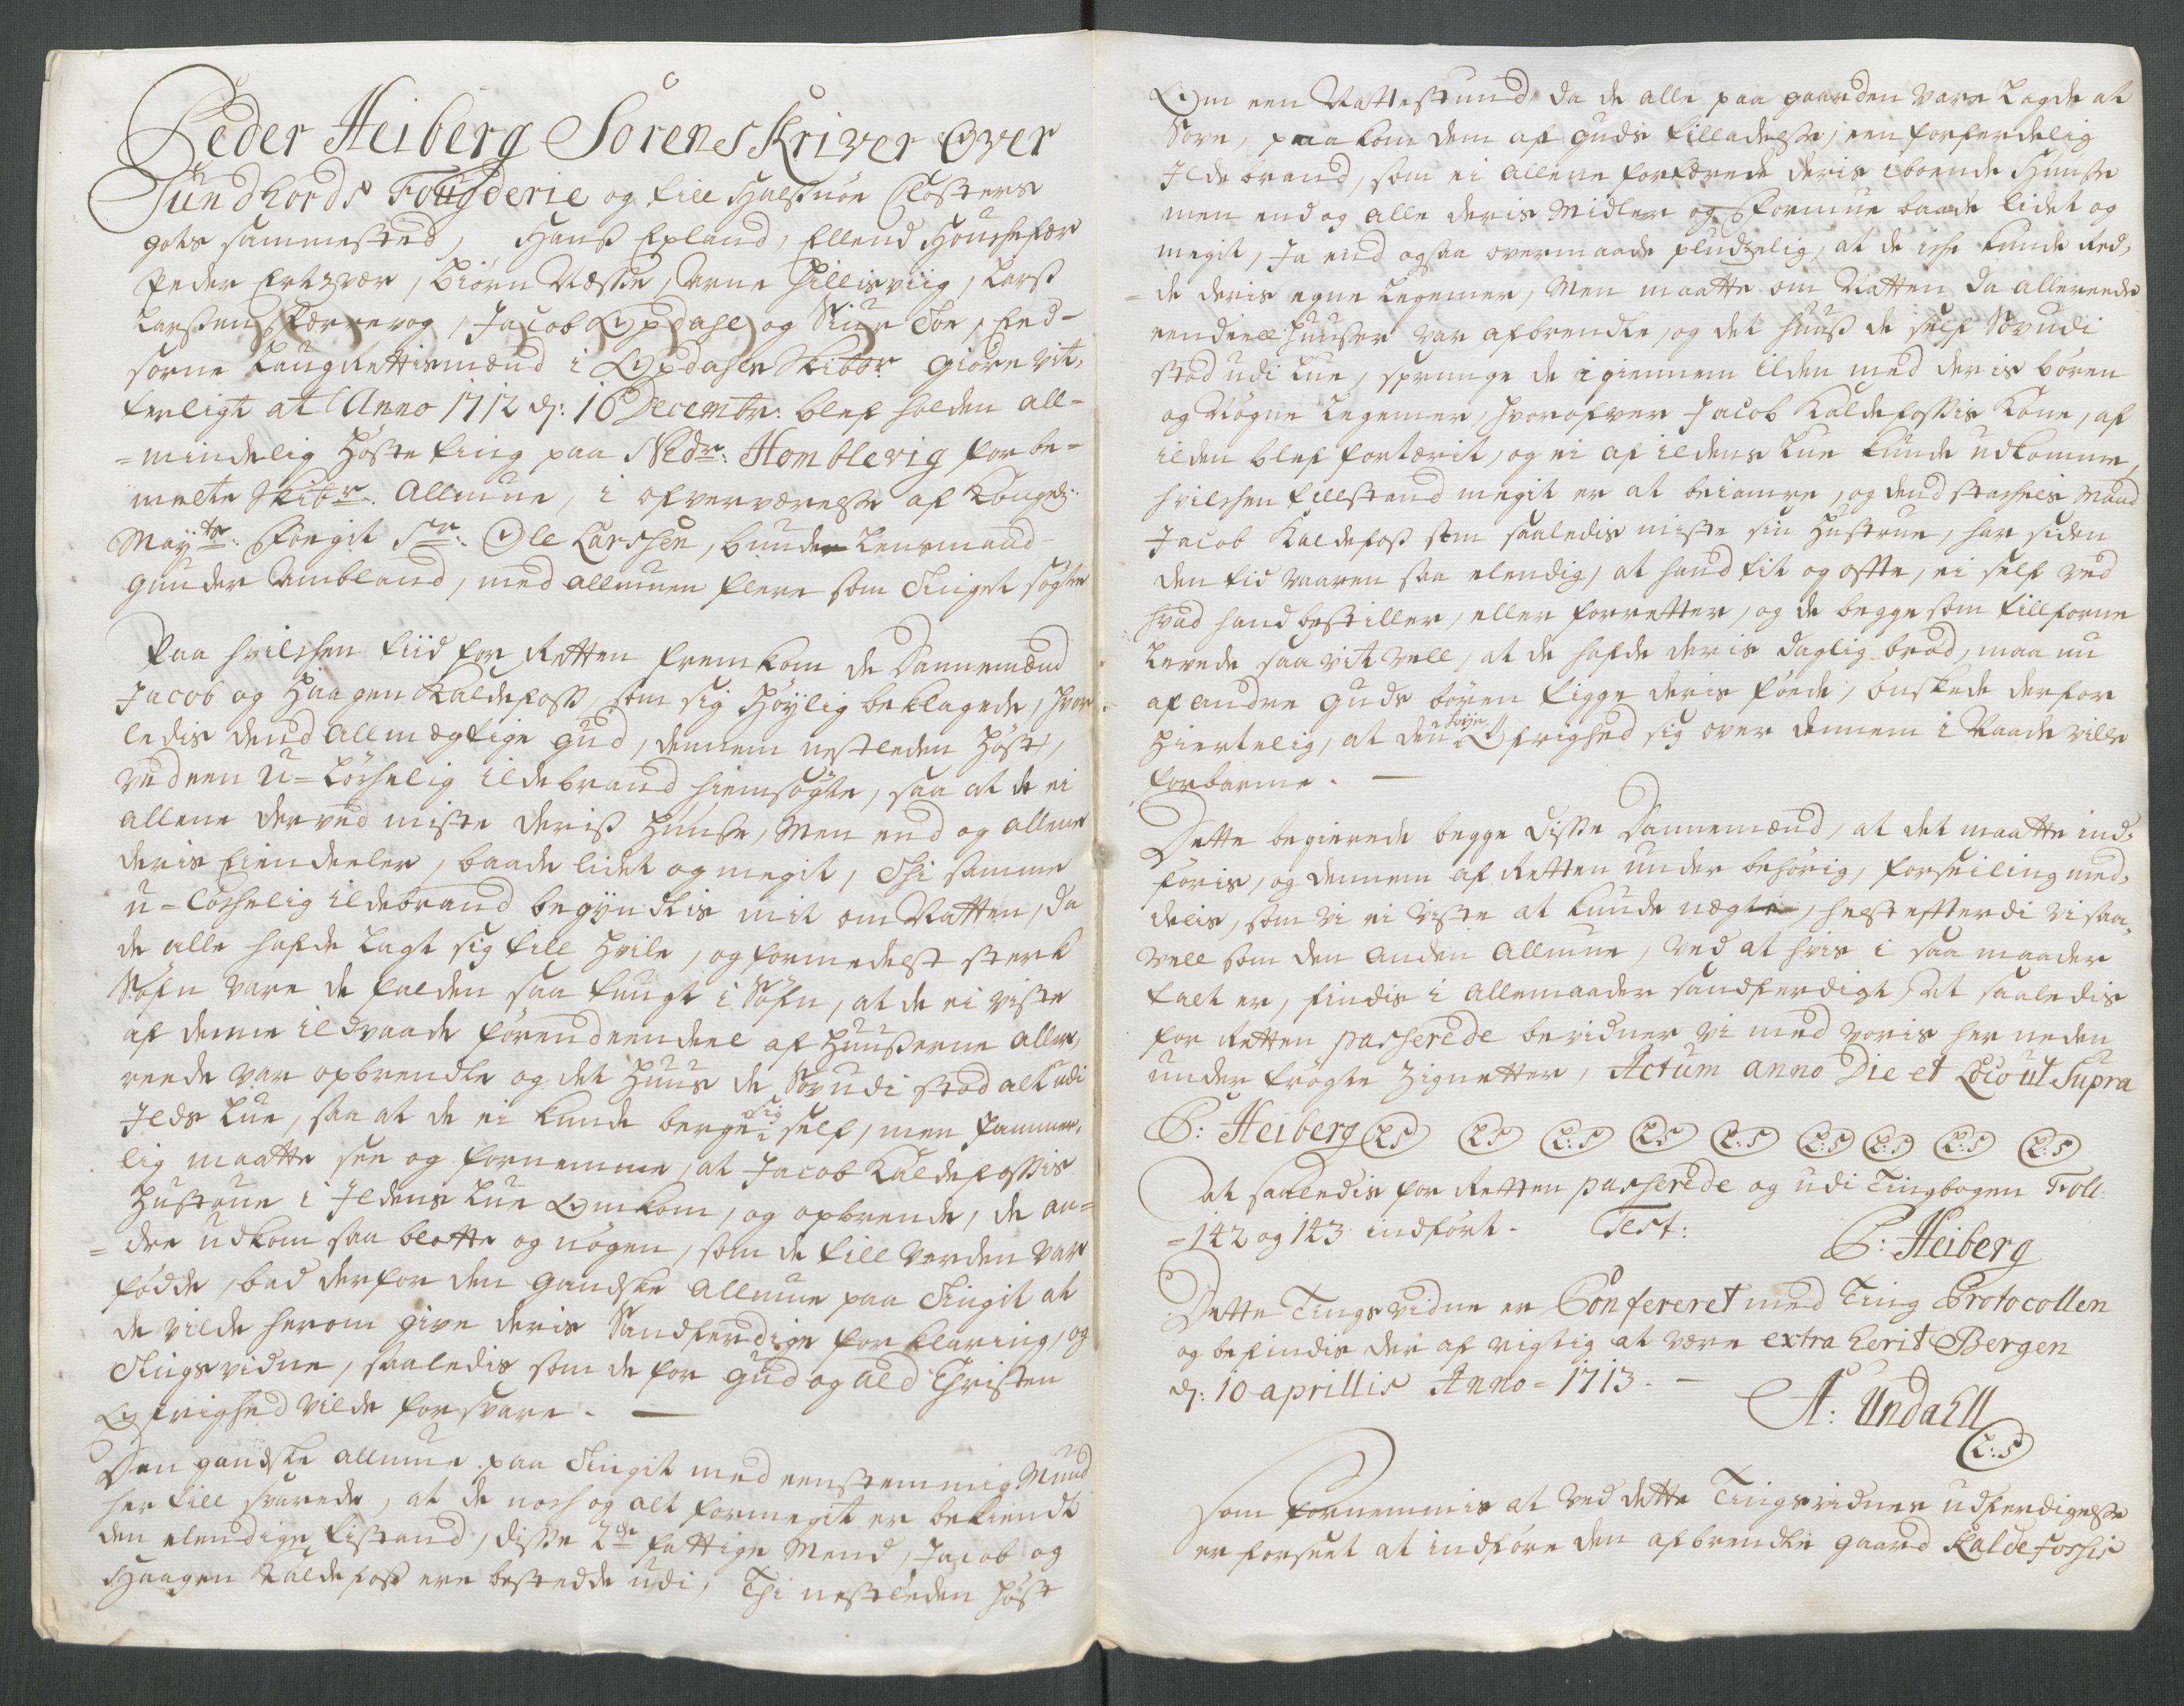 Peder Heiberg Sorenskriver Over
Sundhords Fougderie og till Halsnöe Closters
gots sammested, Hans Epland, Ellend Houchefær
Peder Ertzvær, Biörn Næsse, Arne Hillisviig, Lars
Larssen Kærrevog, Jacob Opdahl og Siur Toe, Eed-
sorne LaugRettismænd i Opdahls Skibbr giöre vit,
terligt at Anno 1712 d: 16 Decembr: blef holden all-
=mindelig Höste ting paa Nedr: Homblevig for be-
melte Skibr. Allmue, i ofverværelse af Kongel:
Mayts. Foogit Sr: Ole Larssen, bunde Lensmand
Gunder Ambland, med allmuen flere som Tinget sögte
Paa hvilchen tiid for Retten fremkom de Dannemænd
Jacob og Haagen Kaldefoss, som sig Höylig beklagede, hvor
ledis dend Allmægtige Gud, dennem nestleden Höst,
ved een U=Löchelig ildebrand hiemsögte, saa at de ei
allene derved miste deris Huuse, Men end og allene
deris Eiendeeler, baade lidet og megit, Thi samme
u=löchelig ildebrand begyndtis mit om Natten, da
de alle hafde lagt sig till Hvile, og formedelst sterk
Söfn vare de falden saa tungt i Söfn, at de ei viste
af denne ildvaade förend eendeel af Huuserne aller,
reede var opbrendte og det Huus de Sov udi stod alt udi
Ilds Lue, saa at de ei kunde berge sig self, men jammer,
lig maatte see og fornemme, at Jacob Kaldefossis
Hustrue i Ildens Lue Omkom, og opbrende, de an=
=dre udkom saa blotte og nögen, som de till verden var
födde, bad derfor den gandske Allmue paa Tingit at
de vilde herom give deris Sandferdige forklaring, og
Tingsvidne, saaledis som de for Gud og ald Christen
Öfrighed vilde forsvare. —
Den gandske allmue paa Tingit med eenstemmig Mund
her till svarede, at de noch og alt formegit er bekiendt
den elendige tistand, disse 2de fattige Mend, Jacob og
Haagen Kaldefoss ere bestedde udi, Thi nestleden Höst
Om een Nattestund da de alle paa gaarden vare lagde at
Sove, paakom dem af Guds tilladelse, een forferdelig
Ildebrand, som ei allene fortærede deris iboende Huuse
men end og alle deris Midler og Formue baade lidet og
megit, Ja end ogsaa overmaade pludzelig, at de iche kunde Red,
=de deris egne Legemer, Men maatte om Natten da allereede
eendeell Huuser var afbrendte, og det Huus de self Sov udi
stod udi Lue, sprunge de igiennem ilden med deris bören
og Nögne Legemer, hvorofver Jacob Kaldefossis Kone, af
ilden blef fortærit, og ei af ildens Lue kunde udkomme,
hvilchen tillstand megit er at beiamre, og dend stachels Mand
Jacob Kaldefoss som saaledis miste sin Hustrue, har siden
den tid vaaren saa elendig, at hand tit og ofte, ei self ved
hvad hand bestiller, eller forretter, og de begge som tillforne
Levede saa vit vell, at de hafde deris daglig bröd, maa nu
af andre Guds bören tigge deris föede, önskede derfor
Hiertelig, at den höye Öfrighed sig over dennem i Naade ville
forbarme. —
Dette begierede begge disse Dannemænd, at det maatte ind,
föris, og dennem af Retten under behörig, forseiling med,
delis, som vi ei viste at kunde negte, helst efterdi vi saa,
vell som den anden Allmue, ved at hvis i saa maader
talt er, findis i Allemaader sandferdigt, Dat saaledis
for Retten passerede bevidner vi med voris her neden
under trögte Zignetter, Actum anno Die et Loco ut Supra
P: Heiberg LS LS L:S LS L:S L:S L:S L:S L:S
At saaledis for Retten passerede og udi Tingbogen Foll:
=142 og 143 indfört. Test:
P: Heiberg
Dette Tingsvidne er Confereret med Ting Protocollen
og befindis der af rigtig at være extraherit Bergen
d: 10 aprillis Anno=1713. —
A: Undahll
L:S
Som fornemmis at ved dette Tingsvidnes udferdigelse
er forseet at indföre den afbrendte gaard Kaldefossis